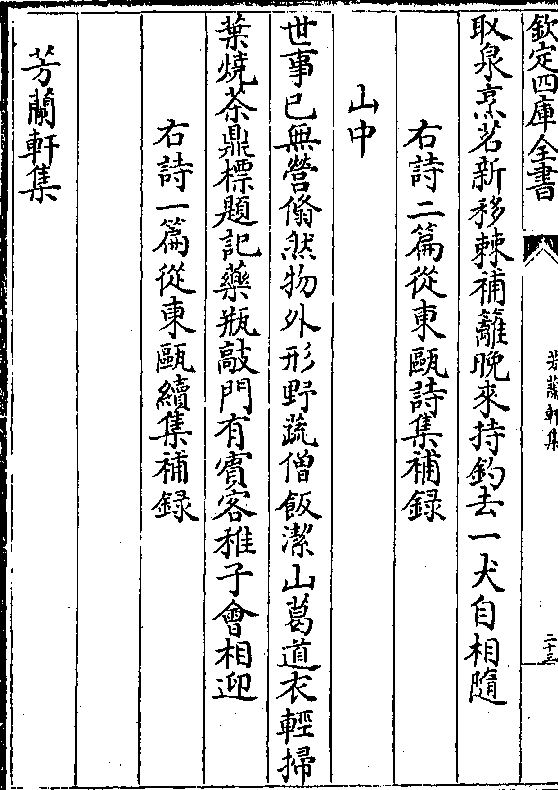 欽定四庫全書
芳蘭軒集
二十三
取泉烹茗新移棘補籬晚來持釣去一犬自相隨
右詩二篇從東甌詩集補録
山中
世事已無營翛然物外形野蔬僧飯潔山葛道衣輕掃
葉燒茶鼎標題記藥瓶敲門有賓客稚子會相迎
右詩一篇從東甌續集補録
芳蘭軒集